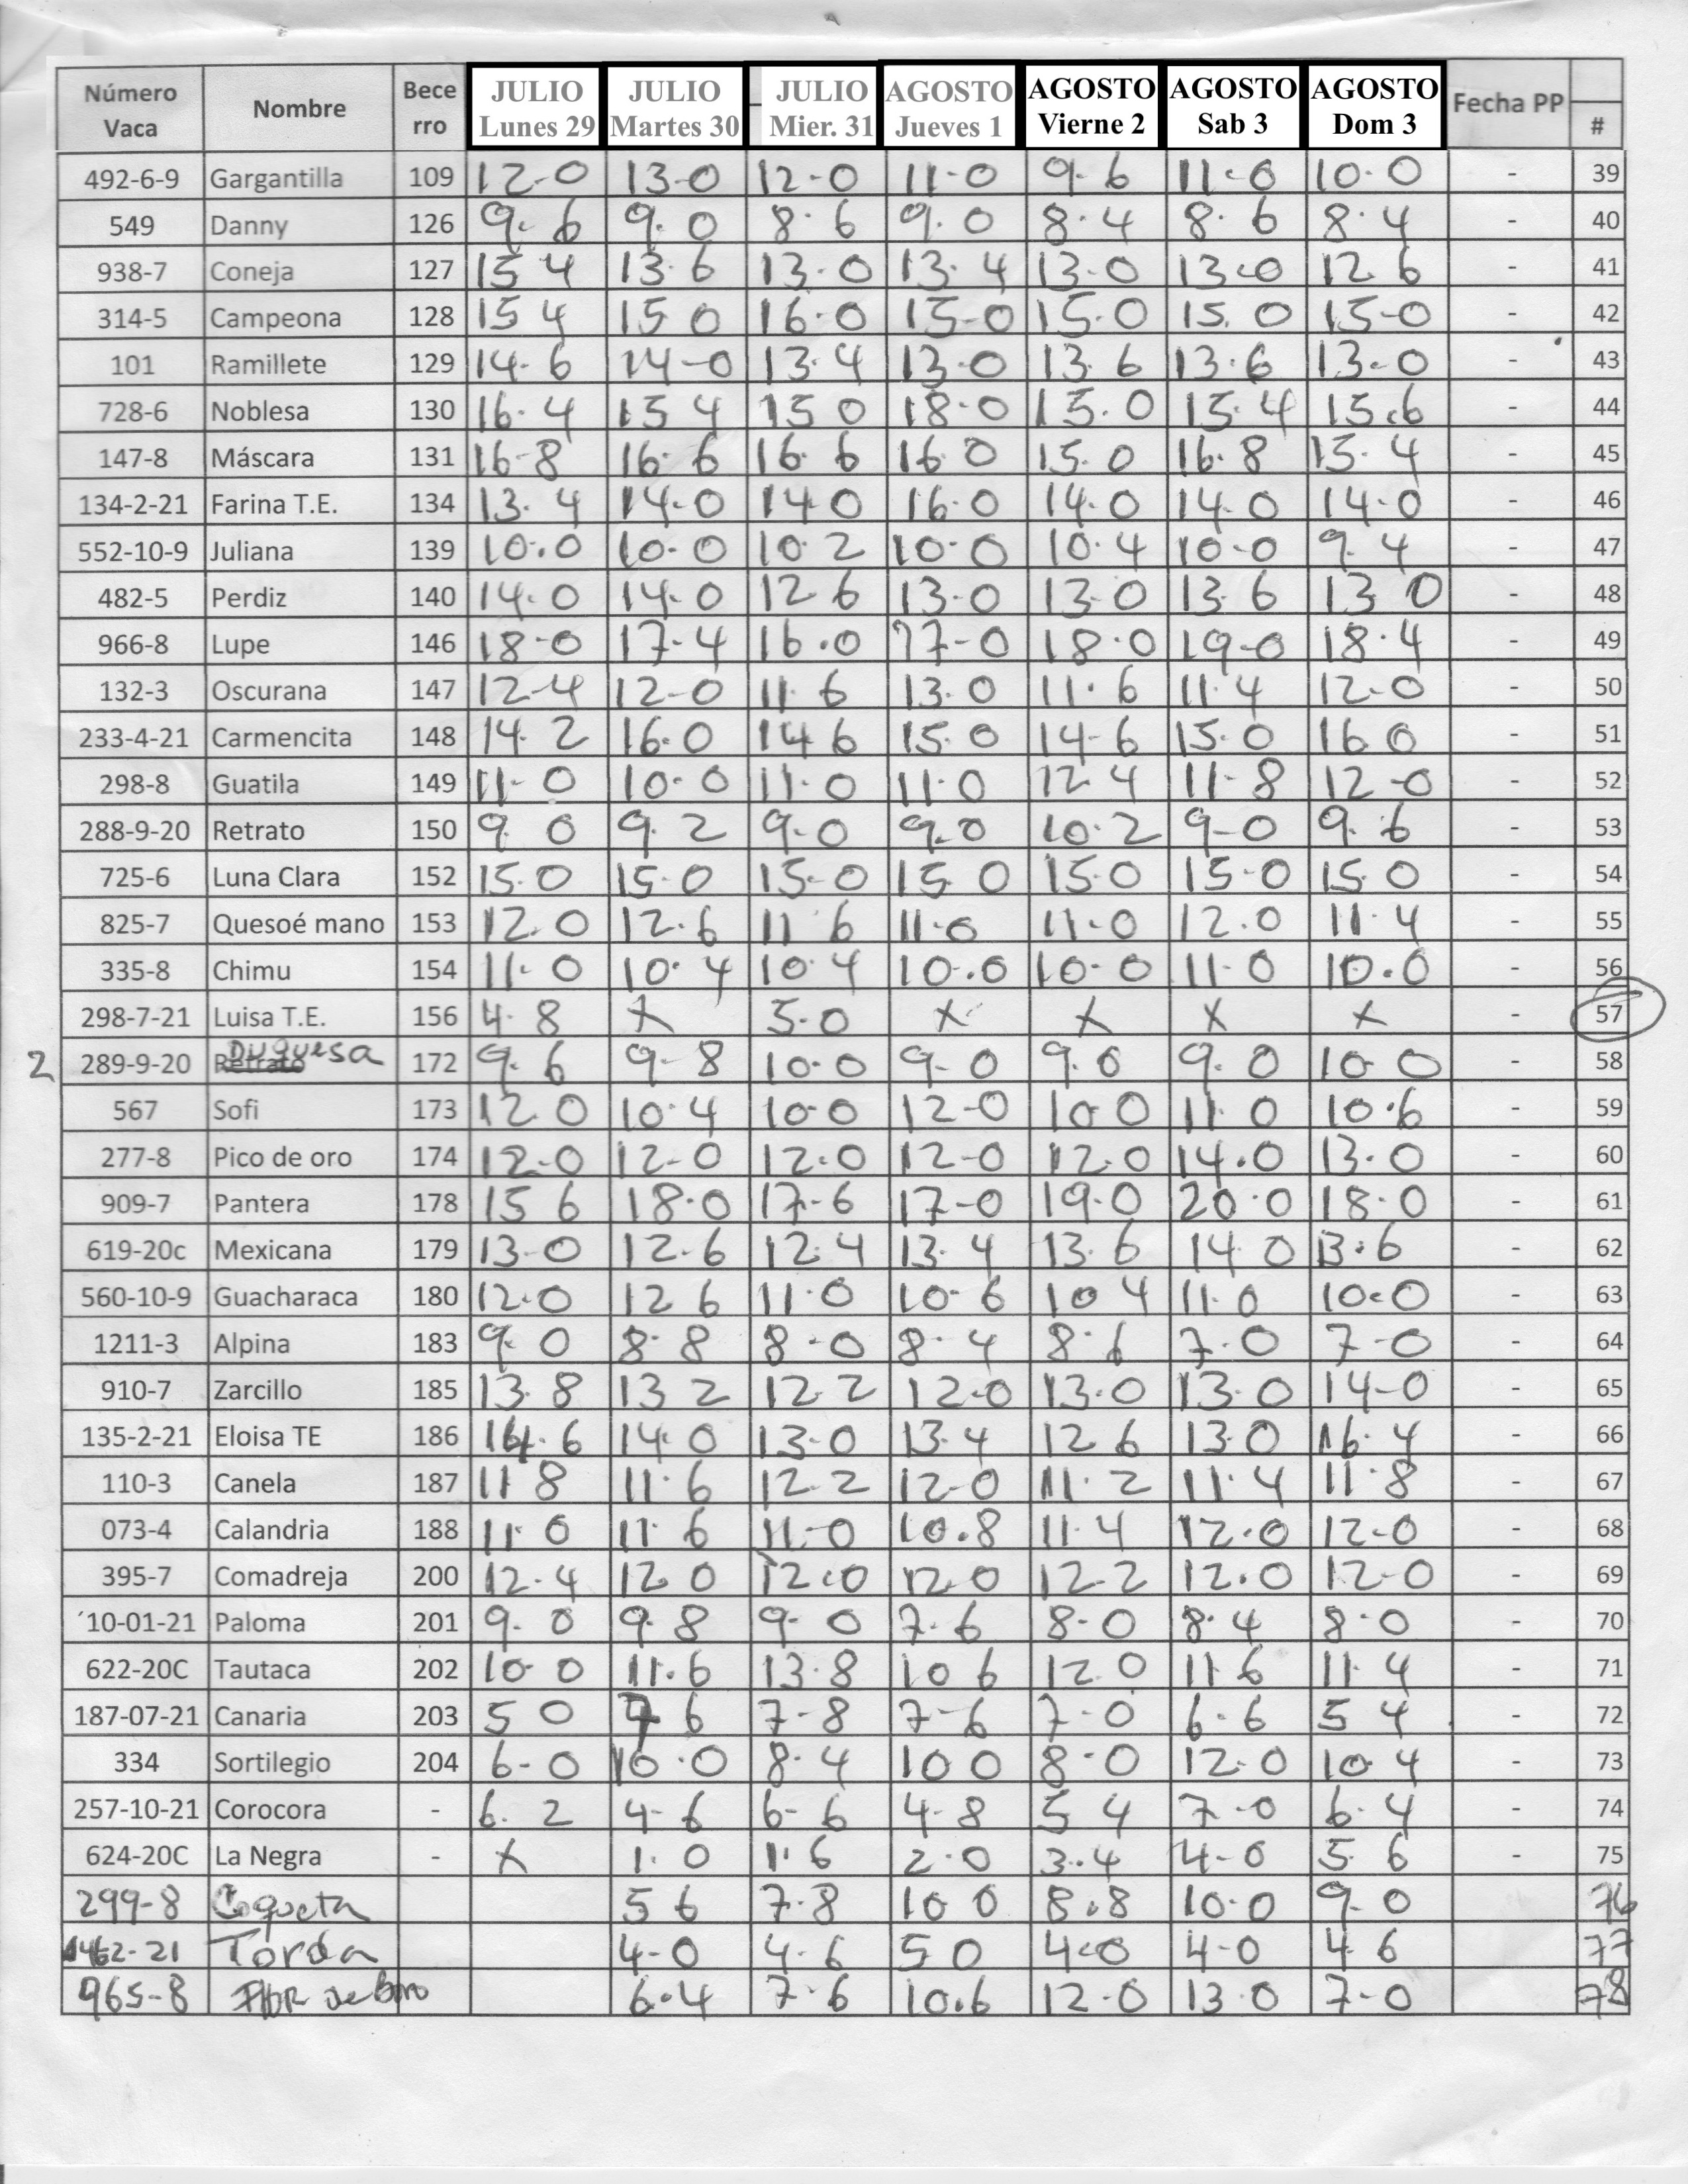 Número Vaca Nombre Becerro JULIO Lunes 29 JULIO Martes 30 JULIO Mier. 31 AGOSTO Jueves 1 AGOSTO Vierne 2 AGOSTO Sab 3 AGOSTO Dom 3 Fecha PP #
492-6-9 Gargantilla 109 12-0 13-0 12-0 11-0 9.6 11-0 10.0 - 39
549 Danny 126 9.6 9.0 8.6 9.0 8.4 8.6 8.4 - 40
938-7 Coneja 127 15 4 13.6 13.0 13.4 13.0 13.0 12 6 - 41
314-5 Campeona 128 15 4 15 0 16.0 15-0 15.0 15.0 15-0 - 42
101 Ramillete 129 14.6 14-0 13.4 13.0 13.6 13.6 13.0 - 43
728-6 Noblesa 130 16.4 15 4 15 0 18.0 15.0 15.4 15.6 - 44
147-8 Máscara 131 16-8 16.6 16.6 16 0 15.0 16.8 15.4 - 45
134-2-21 Farina T.E. 134 13.4 14.0 14 0 16.0 14.0 14.0 14.0 - 46
552-10-9 Juliana 139 10.0 10-0 10.2 10.0 10.4 10-0 9.4 - 47
482-5 Perdiz 140 14.0 14.0 12 6 13.0 13.0 13.6 13 0 - 48
966-8 Lupe 146 18.0 17-4 16.0 17-0 18.0 19-0 18.4 - 49
132-3 Oscurana 147 12-4 12-0 11.6 13.0 11.6 11.4 12-0 - 50
233-4-21 Carmencita 148 14.2 16.0 14 6 15.0 14-6 15.0 16 0 - 51
298-8 Guatila 149 11-0 10.0 11.0 11.0 12.4 11-8 12-0 - 52
288-9-20 Retrato 150 9 0 9.2 9-0 9.0 10.2 9-0 9.6 - 53
725-6 Luna Clara 152 15.0 15-0 15-0 15 0 15.0 15-0 15.0 - 54
825-7 Quesoé mano 153 12.0 12.6 11 6 11.0 11-0 12.0 11.4 - 55
335-8 Chimu 154 11-0 10.4 10.4 10.0 10-0 11-0 10.0 - 56
298-7-21 Luisa T.E. 156 4.8 X 5.0 X X X X - 57
2 289-9-20 Retrato Duquesa 172 9.6 9-8 10.0 9-0 9.0 9.0 10 0 - 58
567 Sofi 173 12 0 10.4 10-0 12-0 10 0 11.0 10.6 - 59
277-8 Pico de oro 174 12-0 12-0 12.0 12-0 12.0 14.0 13.0 - 60
909-7 Pantera 178 15 6 18.0 17-6 17-0 19.0 20.0 18.0 - 61
619-20c Mexicana 179 13-0 12.6 12.4 13.4 13.6 14 0 13.6 - 62
560-10-9 Guacharaca 180 12.0 12 6 11.0 10.6 10 4 11.0 10.0 - 63
1211-3 Alpina 183 9.0 8.8 8-0 8.4 8.6 7.0 7-0 - 64
910-7 Zarcillo 185 13.8 13 2 12.2 12-0 13.0 13.0 14-0 - 65
135-2-21 Eloisa TE 186 14.6 14.0 13.0 13.4 12 6 13.0 16.4 - 66
110-3 Canela 187 11 8 11.6 12.2 12-0 11.2 11.4 11.8 - 67
073-4 Calandria 188 11.0 11.6 11.0 10.8 11.4 12.0 12-0 - 68
395-7 Comadreja 200 12.4 12 0 12.0 12.0 12.2 12.0 12-0 - 69
´10-01-21 Paloma 201 9.0 9.8 9-0 7.6 8.0 8.4 8.0 - 70
622-20C Tautaca 202 10-0 11.6 13.8 10 6 12.0 11 6 11.4 - 71
187-07-21 Canaria 203 5 0 7 6 7-8 7-6 7-0 6.6 5 4 - 72
334 Sortilegio 204 6-0 10.0 8.4 10 0 8-0 12.0 10.4 - 73
257-10-21 Corocora - 6.2 4-6 6-6 4-8 5 4 7-0 6.4 - 74
624-20C La Negra - X 1.0 1.6 2.0 3.4 4-0 5 6 - 75
299-8 Coqueta 5 6 7.8 10 0 8.8 10.0 9.0 76
462-21 Torda 4-0 4.6 5 0 4-0 4-0 4 6 77
965-8 Flor de 6.4 7.6 10.6 12.0 13 0 7-0 78